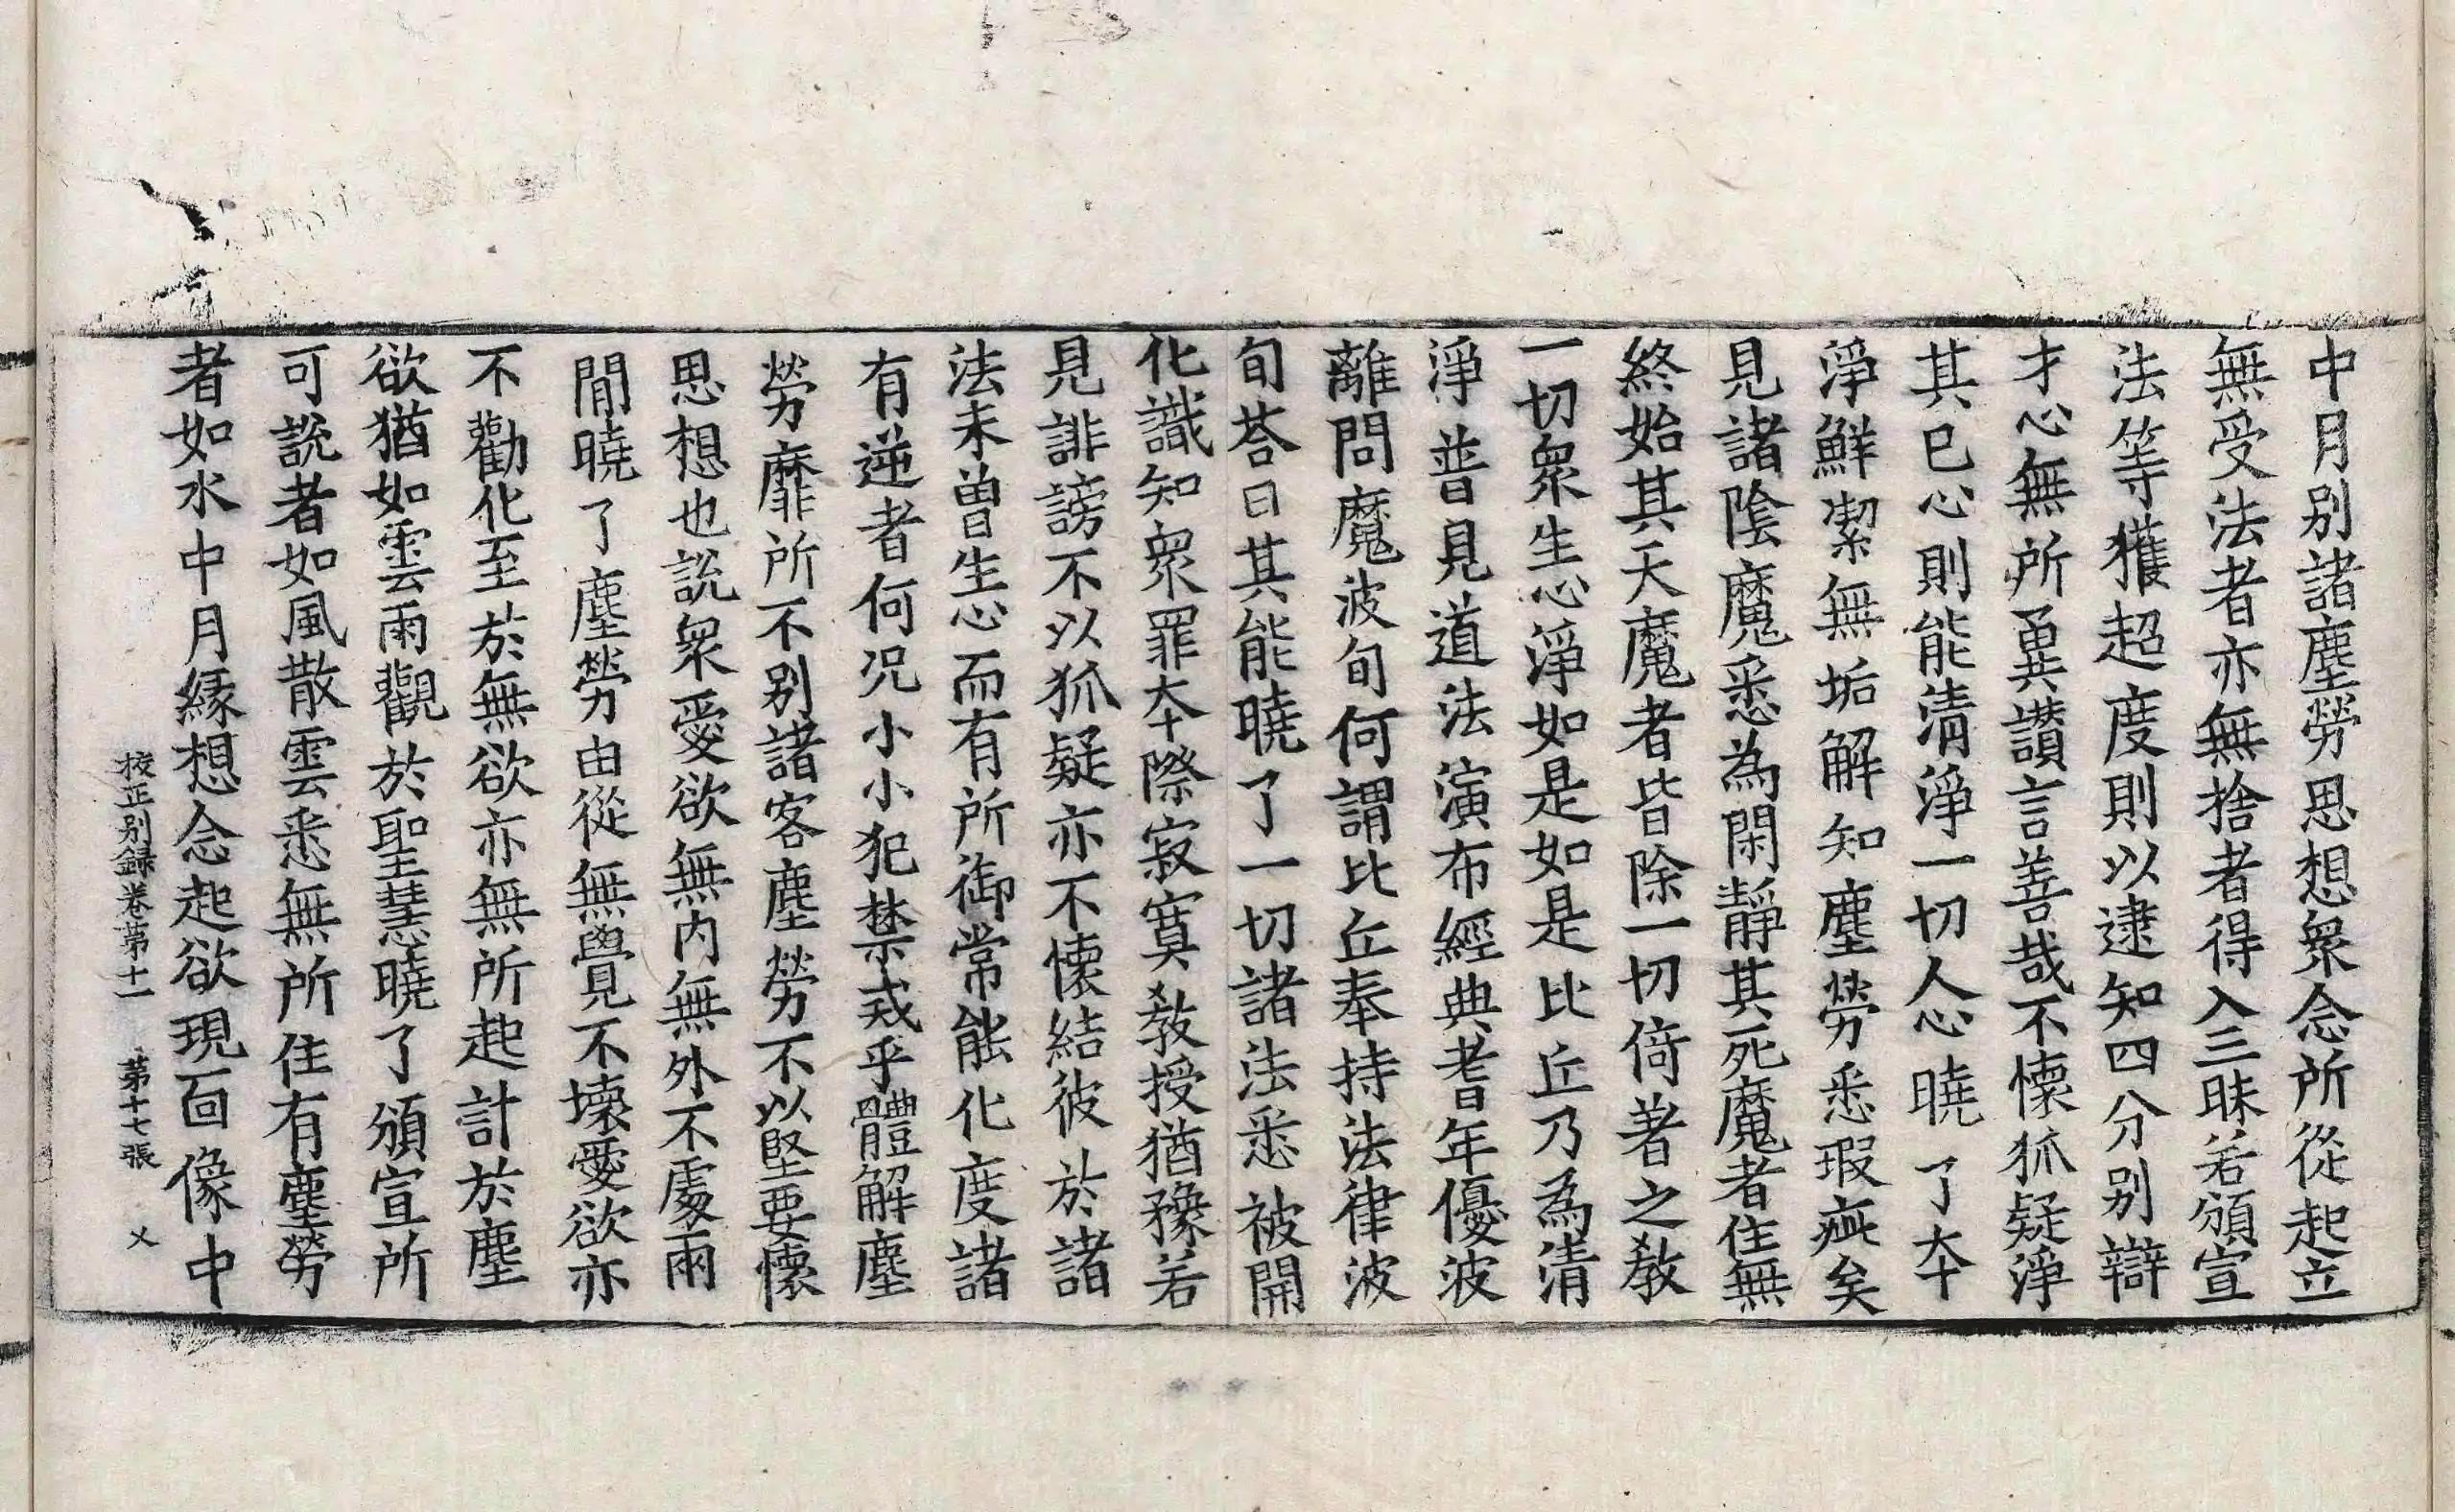 中月別諸塵勞思想衆念所從起立
無受法者亦無捨者得入三昧若頒宣
法等獲超度則以逮知四分別辯
才心無所㒷讃言善哉不懷狐疑淨
其已心則能清淨一切人心曉了夲
淨鮮潔無垢解知塵勞悉瑕疵矣
見諸陰魔悉為閑靜其死魔者住無
終始其天魔者皆除一切倚著之教
一切衆生心淨如是如是比丘乃為清
淨普見道法演布經典耆年優波
離問魔波旬何謂比丘奉持法律波
旬荅曰其能曉了一切諸法悉被開
化識知衆罪夲際寂寞教授猶豫若
見誹謗不以狐疑亦不懷結彼於諸
法未曽生心而有所御常能化度諸
有逆者何况小小犯禁戒乎體解塵
勞靡所不別諸客塵勞不以堅要懷
思想也說衆愛欲無内無外不處兩
閒曉了塵勞由從無覺不壞愛欲亦
不勸化至於無欲亦無所起計於塵
欲猶如雲雨觀於聖慧曉了頒宣所
可說者如風散雲悉無所住有塵勞
者如水中月縁想念起欲現面像中
挍正別録卷苐十一　苐十七張　㐅